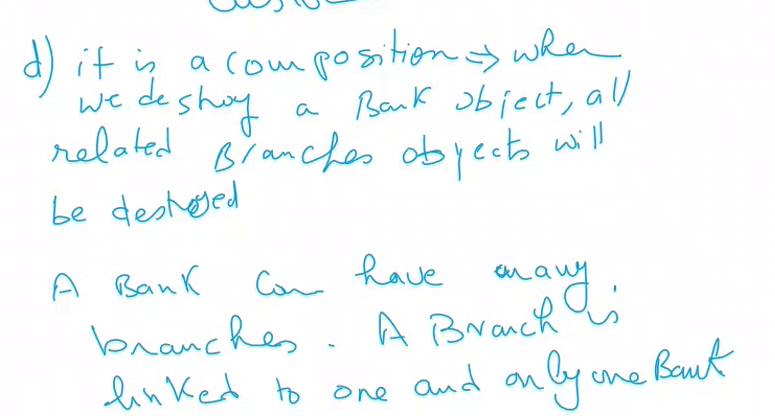 d) it is a composition => when
we destroy a Bank object, all
related Branches objects will
be destroyed
A Bank can have many
branches. A Branch is
linked to one and only one Bank